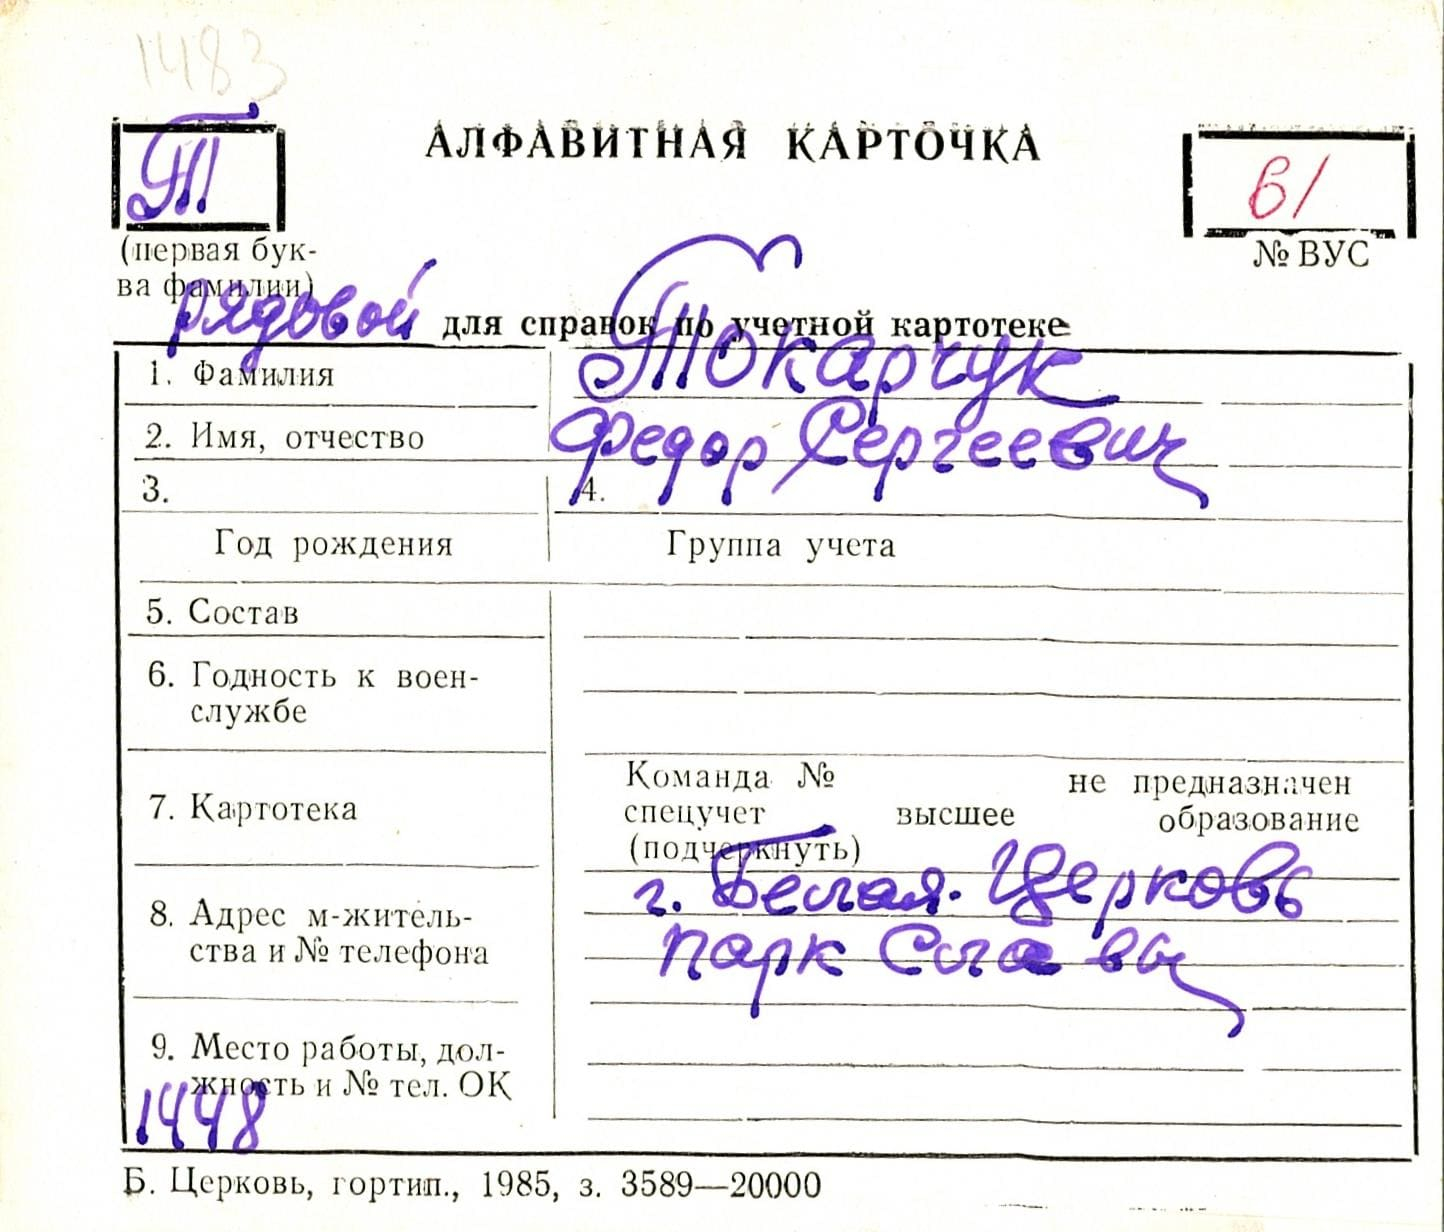 1483
Т
АЛФАВИТНАЯ КАРТОЧКА
б/
(первая бук-
ва фамилии)
№ ВУС
рядовой
для справок по учетной картотеке
1. Фамилия
Токарчук
2. Имя, отчество
Федор Сергеевич
3.
4.
Год рождения
Группа учета
5. Состав
6. Годность к воен-
службе
7. Картотека
Команда № не предназначен
спецучет высшее образование
(подчеркнуть)
8. Адрес м-житель-
ства и № телефона
г. Белая Церковь
парк Славы
9. Место работы, дол-
жность и № тел. ОК
1448
Б. Церковь, гортип., 1985, з. 3589—20000